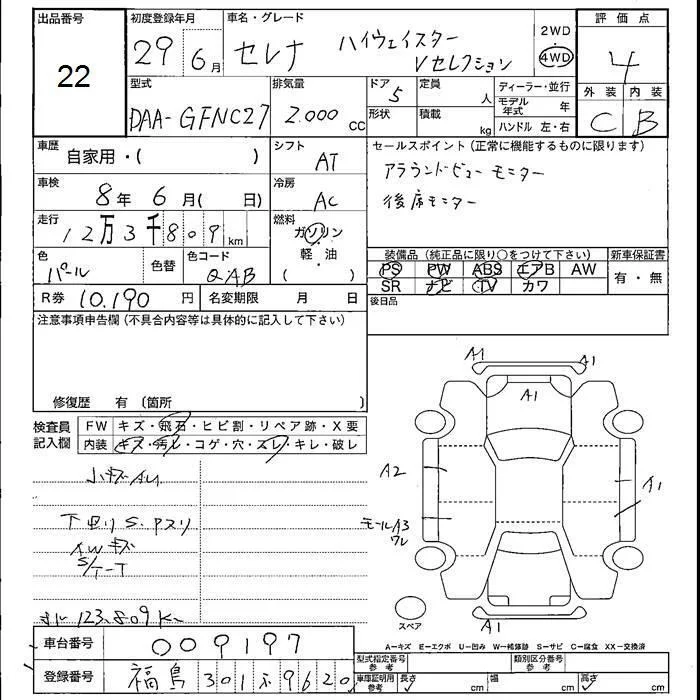 出品番号
22
初度登録年月
29年 6月
車名・グレード
セレナ ハイウェイスター
Vセレクション
2WD
4WD
評価点
4
外装 内装
C B
型式
DAA-GFNC27
排気量
2.000 cc
ドア
5
形状
定員
人
積載
kg
ディーラー・並行
モデル年式 年
ハンドル 左・右
車歴
自家用・( )
シフト
AT
セールスポイント (正常に機能するものに限ります)
アラウンドビューモニター
後席モニター
車検
8年 6月( 日)
冷房
AC
走行
12万3千809km
燃料
ガソリン
軽・油
( )
色
パール
色替
色コード
QAB
装備品 (純正品に限り○をつけて下さい)
PS PW ABS エアB AW
SR ナビ TV カワ
新車保証書
有・無
R券 10.190 円
名変期限 月 日
後日品
注意事項申告欄 (不具合内容等は具体的に記入して下さい)
修復歴 有 (箇所 )
検査員
記入欄
FW キズ・飛石・ヒビ割・リペア跡・X要
内装 キズ・汚レ・コゲ・穴・スレ・キレ・破レ
小キズ
下回りS.
AWキズ
S/T-T
123.809K
A1
A1
A1
A2
A1
モールA3
ワレ
A1
スペア
A－キズ E－エクボ U－凹み W－補修跡 S－サビ C－腐食 XX－交換済
車台番号 009197
登録番号 福島 301 9620
型式指定番号
参考
類別区分番号
参考
車庫証明用
参考
長さ cm
幅 cm
高さ cm